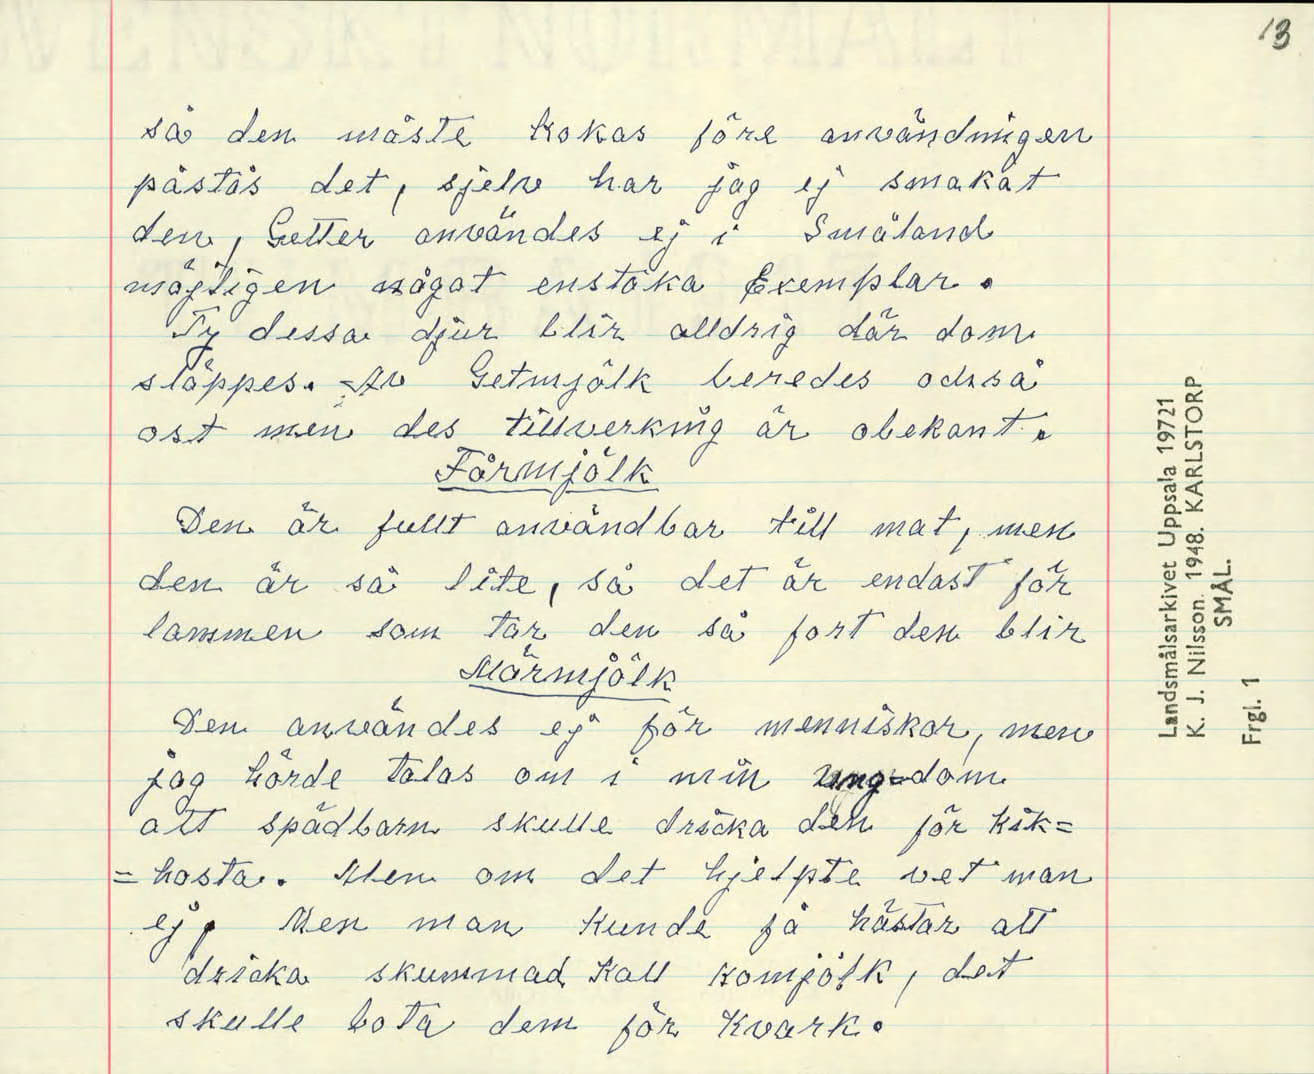 13
så den måste kokas före användningen
påstås det, sjelv har jag ej smakat
den, Getter användes ej i Småland
möjligen något enstaka Exemplar.
Ty dessa djur blir alldrig där dom
släppes. Av Getmjölk beredes också
ost men des tillverkning är obekant.
Fårmjölk
Den är fullt användbar till mat, men
den är så lite, så det är endast för
lammen som tar den så fort den blir
Märmjölk
Den användes ej för menniskor, men
jag hörde talas om i min ungdom
att spädbarn skulle dricka den för kik=
=hosta. Men om det hjelpte vet man
ej, Men man kunde få hästar att
dricka skummad kall komjölk, det
skulle bota dem för kvark.
Landsmålsarkivet Uppsala 19721
K. J. Nilsson. 1948. KARLSTORP
SMÅL.
Frgl. 1